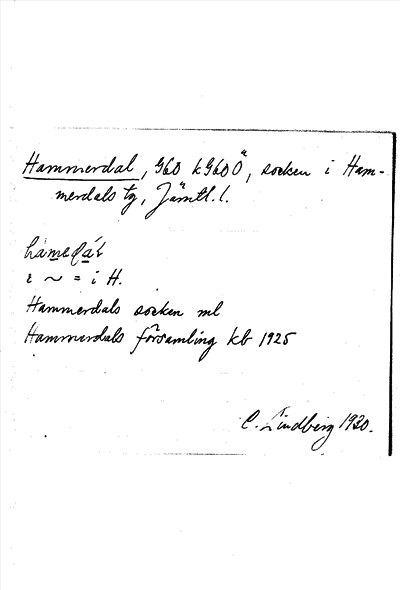 Hammerdal, G60 kG60Ö, socken i Ham-
merdals tg, Jämtl. l.
i ~ = i H.
Hammerdals socken ml
Hammerdals församling kb 1925
C. Lindberg 1930.